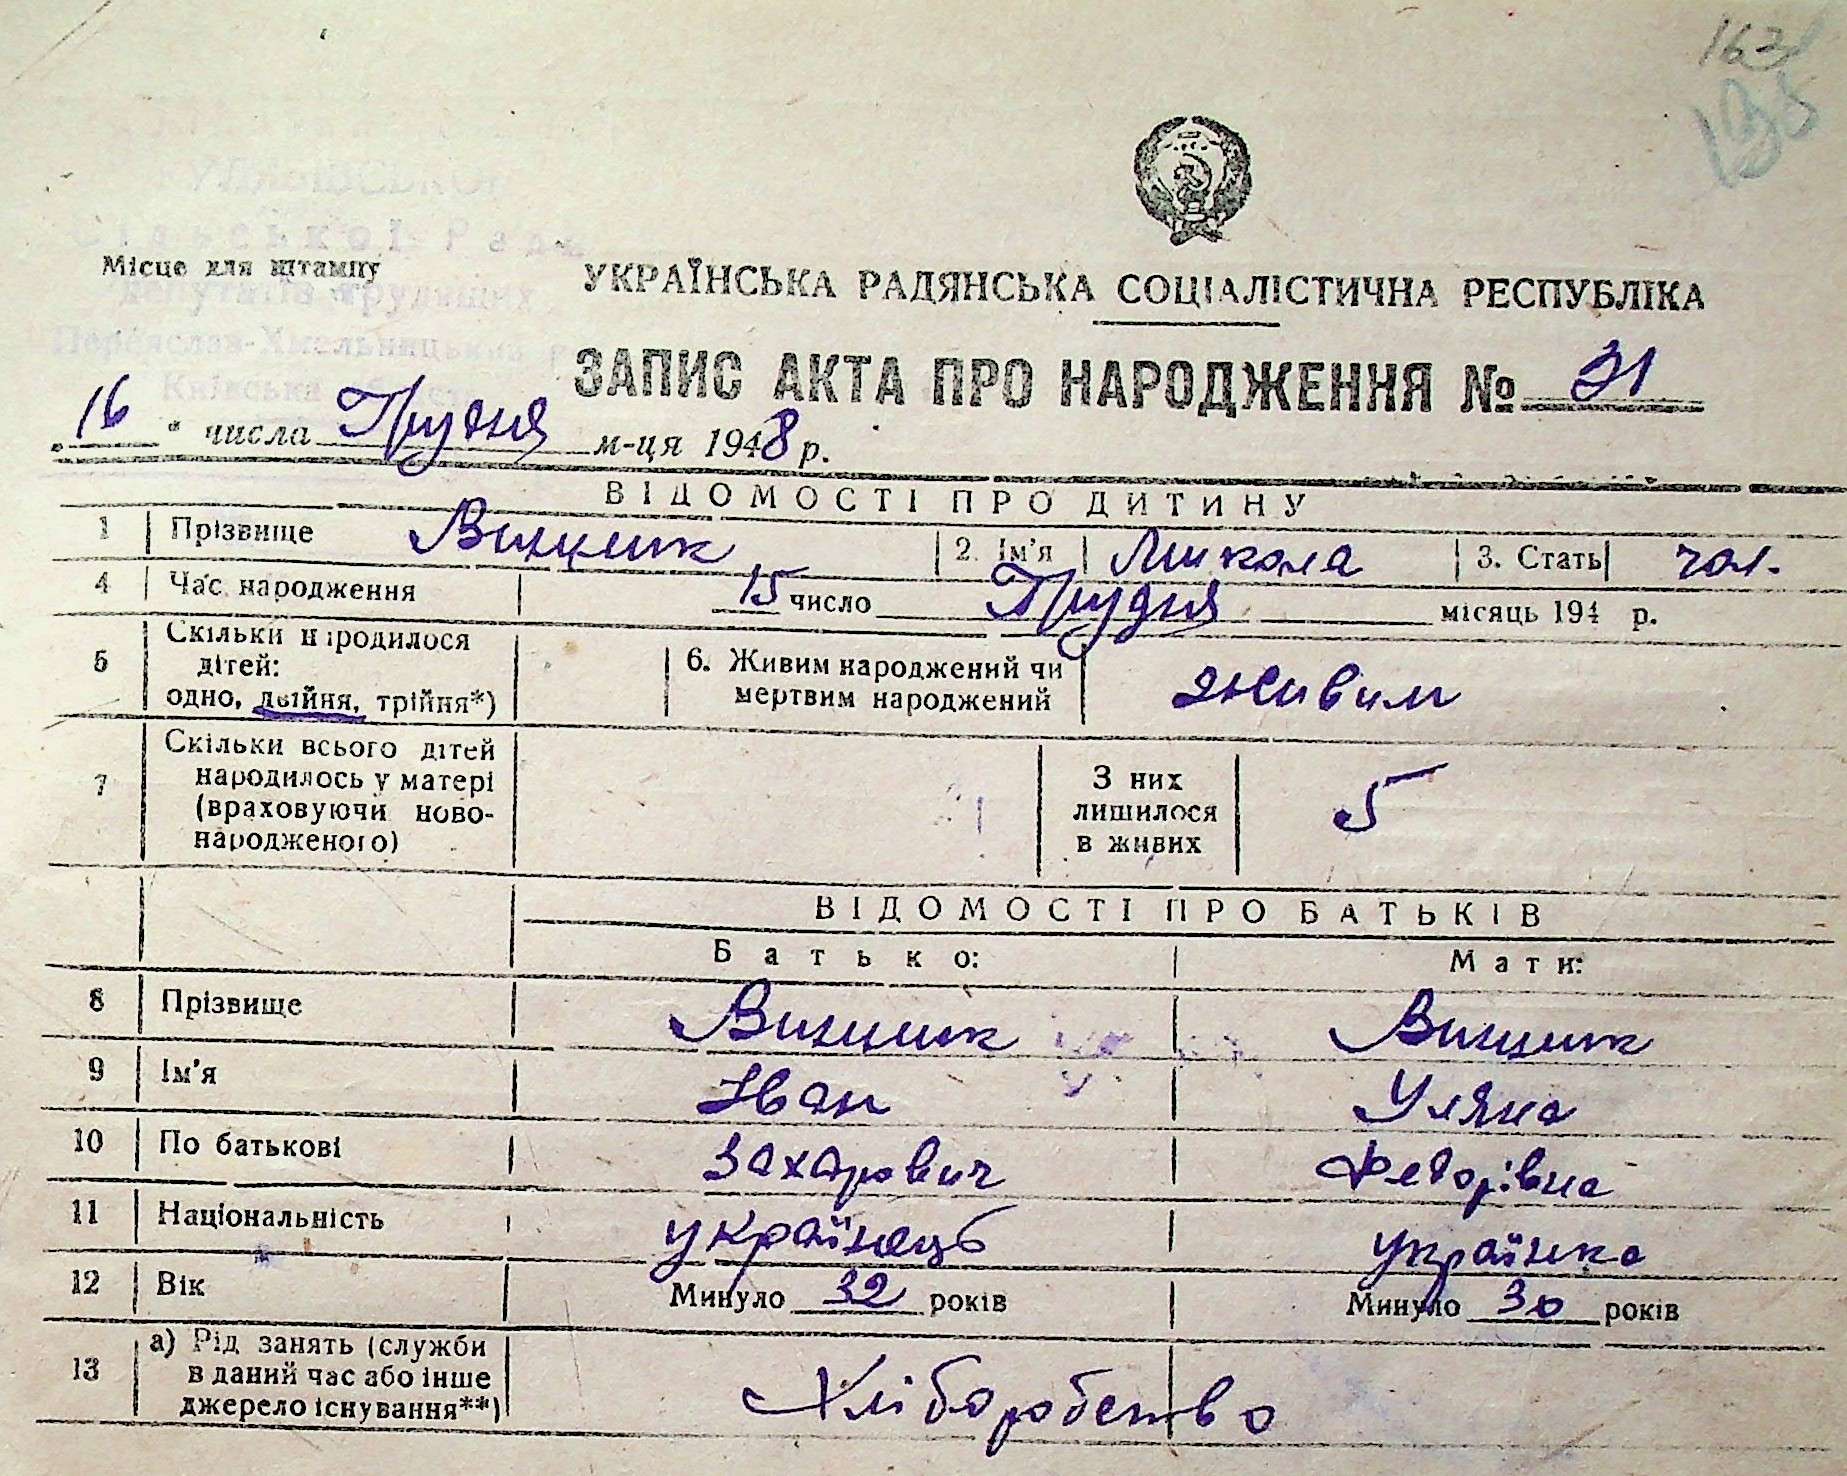 163
Сільської Ради
Місце для штампу
депутатів трудящих
Переяслав-Хмельницький р
Київська област
УКРАЇНСЬКА РАДЯНСЬКА СОЦІАЛІСТИЧНА РЕСПУБЛІКА
ЗАПИС АКТА ПРО НАРОДЖЕННЯ № 31
„16“ числа Грудня м-ця 1948 р.
ВІДОМОСТІ ПРО ДИТИНУ
1 Прізвище Винник 2. Ім'я Микола 3. Стать чол.
4 Час народження 15 число Грудня місяць 194 р.
5 Скільки народилося дітей: одно, двійня, трійня*) 6. Живим народжений чи мертвим народжений живим
7 Скільки всього дітей народилось у матері (враховуючи ново-народженого) З них лишилося в живих 5
ВІДОМОСТІ ПРО БАТЬКІВ
Батько: Мати:
8 Прізвище Винник Винник
9 Ім'я Іван Уляна
10 По батькові Захарович Федорівна
11 Національність українець українка
12 Вік Минуло 32 років Минуло 30 років
13 а) Рід занять (служби в даний час або інше джерело існування**) Хліборобство